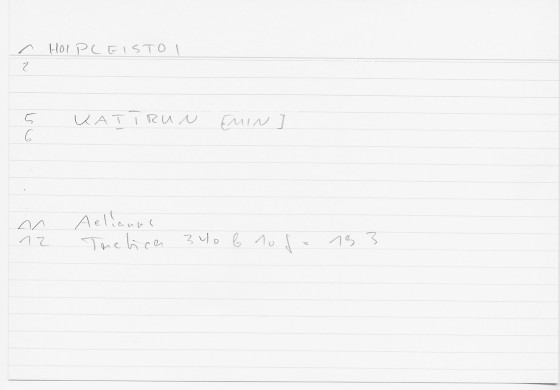 1 HOIPLEISTOI
2
5 KAITRUN [MIN]
6
11 Aelianus
12 Tactica 340 b 10 f. 19 3